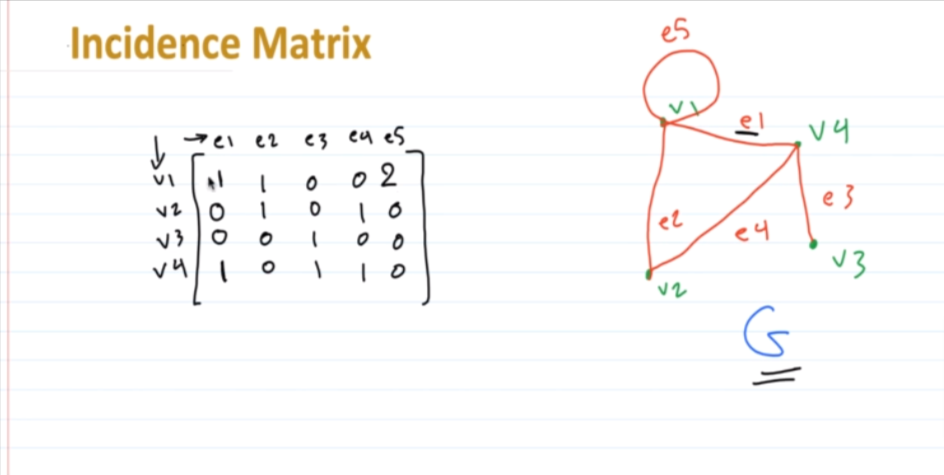 Incidence Matrix
e1 e2 e3 e4 e5
v1 1 1 0 0 2
v2 0 1 0 1 0
v3 0 0 1 0 0
v4 1 0 1 1 0
e5
v1
e1
v4
e2
e4
e3
v3
v2
G